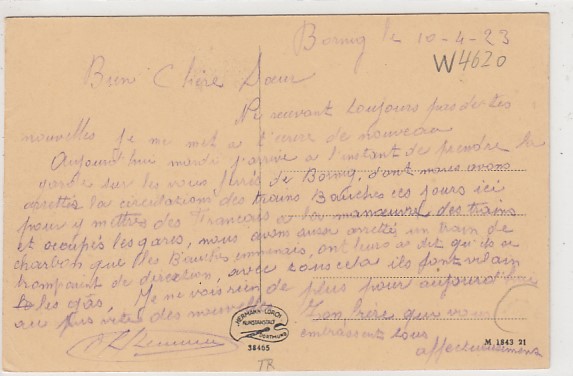 Bornig le 10-4-23
W4620
Bien Chère Sœur
Ne recevant toujours pas de tes
nouvelles je me met a t'ecrire de nouveau
Aujourd'hui mardi j'arrive a l'instant de prendre la
garde sur les voies ferrés de Bornig, dont nous avons
arrettés la circulations des trains Bauches ces jours ici
pour y mettres des Francais a la manœuvre des trains
et occupés les gares, nous avons aussi arretté un train de
charbon que les Bauches emmenais, ont leurs a dit qu'ils se
trompaient de direction, avec tous cela ils font vilain
les gâs, Je ne vois rien de plus pour aujourd'hui
au plus vite des nouvelles
Ton frère qui vous
embrassent tous
affectueusement
HERMANN LORCH
KUNSTANSTALT
DORTMUND
38405
M 1843 21
TR